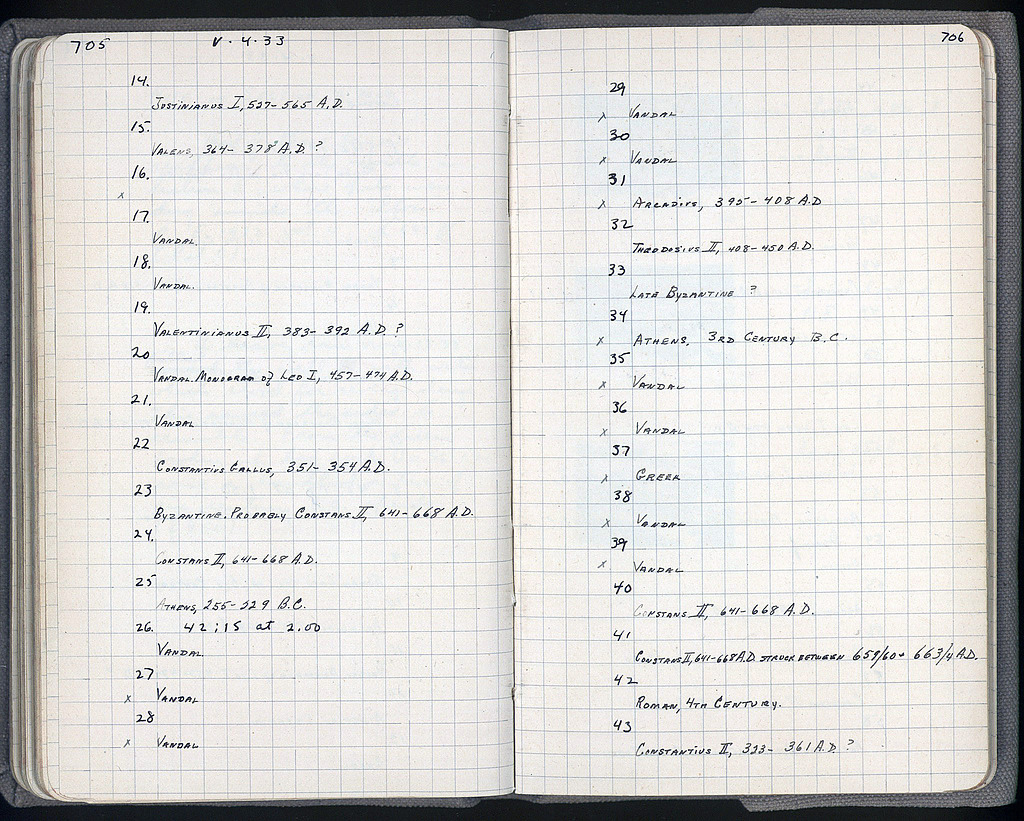 705
V. 4. 33
14.
Justinianus I, 527-565 A.D.
15.
Valens, 364- 378 A.D. ?
16.
x
17.
Vandal.
18.
Vandal.
19.
Valentinianus II, 383- 392 A.D. ?
20
Vandal. Monogram of Leo I, 457-474 A.D.
21.
Vandal
22
Constantius Gallus, 351- 354 A.D.
23
Byzantine. Probably Constans II, 641-668 A.D.
24.
Constans II, 641-668 A.D.
25
Athens, 255-229 B.C.
26. 42 ; 15 at 2.00
Vandal.
27
x Vandal
28
x Vandal
706
29
x Vandal
30
x Vandal
31
x Arcadius, 395-408 A.D
32
Theodosius II, 408-450 A.D.
33
Late Byzantine ?
34
x Athens, 3rd Century B.C.
35
x Vandal
36
x Vandal
37
x Greek
38
x Vandal
39
x Vandal
40
Constans II, 641-668 A.D.
41
Constans II, 641-668 A.D. struck between 659/60 + 663/4 A.D.
42
Roman, 4th Century.
43
Constantius II, 323- 361 A.D. ?